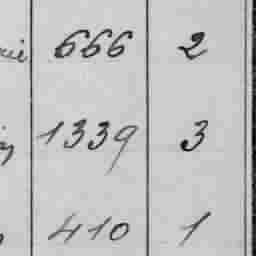 666 2
1339 3
410 1